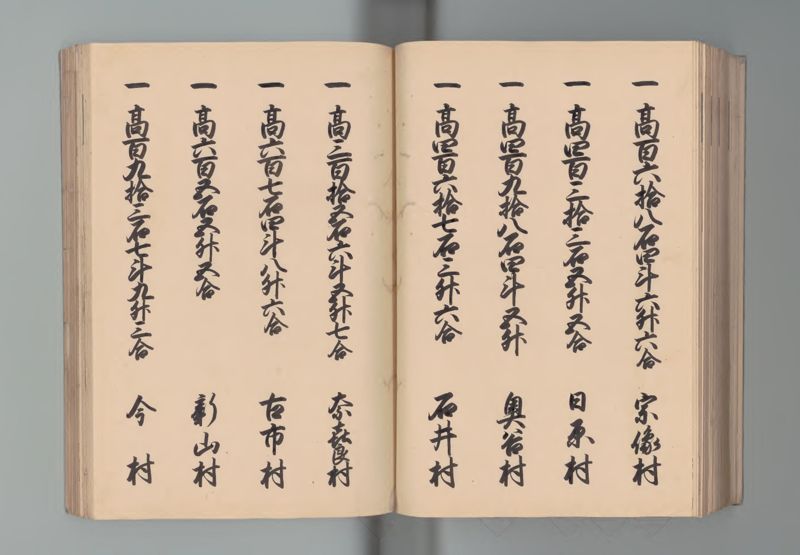 一 高百六拾八石四斗六升六合 宗像村
一 高四百三拾三石五升五合 日原村
一 高四百九拾八石四斗五升 奥谷村
一 高四百六拾七石三升六合 石井村
一 高三百拾五石六斗五升七合 奈良村
一 高六百七石四斗八升六合 古市村
一 高六百五石五升五合 新山村
一 高百九拾三石七斗九升三合 今村